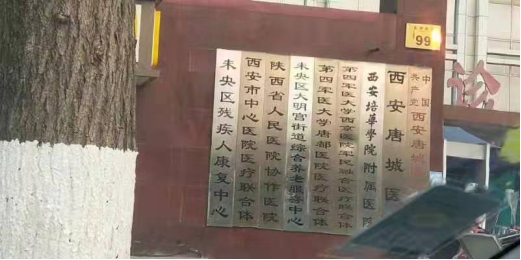 中国
共产党西安唐城
西安唐城医
西安培华学院附属医院
第四军医大学西京医院军民融合医疗联合体
第四军医大学唐都医院医疗联合体
未央区大明宫街道综合养老服务中心
陕西省人民医院协作医院
西安市中心医院医疗联合体
未央区残疾人康复中心
99